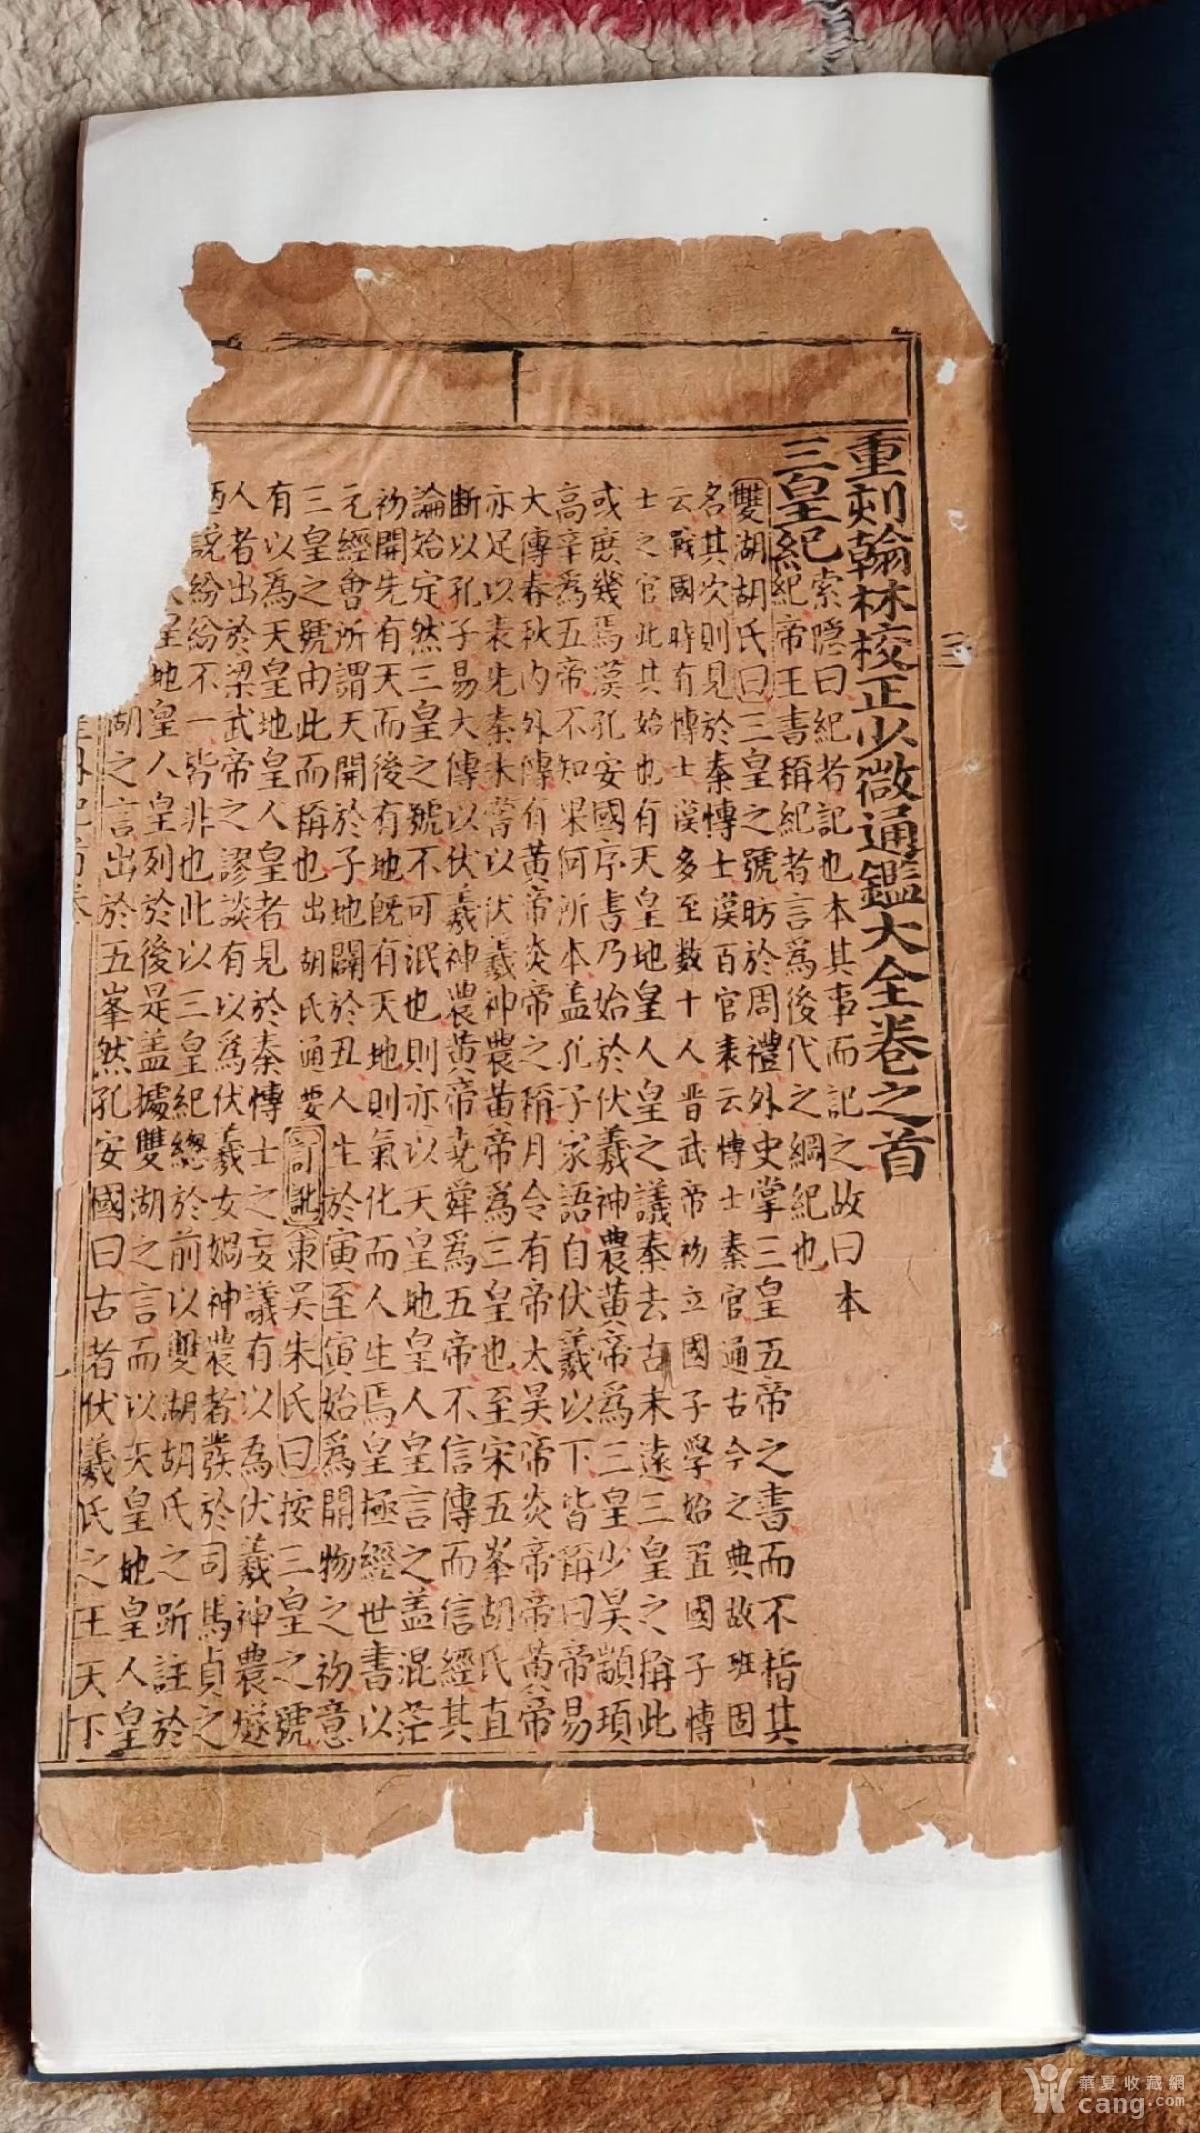 重刻翰林校正少微通鑑大全卷之首
三皇紀
索隱曰紀者記也本其事而記之故曰本
紀帝王書稱紀者言爲後代之綱紀也
雙湖胡氏曰三皇之號昉於周禮外史掌三皇五帝之書而不指其
名其次則見於秦愽士漢百官表云愽士秦官通古今之典故班固
云戰國時有愽士漢多至數十人晋武帝初立國子學始置國子愽
士之官此其始也有天皇地皇人皇之議秦去古未遠三皇之稱此
或庶幾焉漢孔安國序書乃始於伏羲神農黄帝爲三皇少昊顓頊
高辛爲五帝不知果何所本盖孔子家語自伏羲以下皆稱曰帝易
大傳春秋内外傳有黄帝炎帝之稱月令有帝太昊帝炎帝帝黄帝
亦足以表先秦未嘗以伏羲神農黄帝爲三皇也至宋五峯胡氏直
断以孔子易大傳以伏羲神農黄帝尭舜爲五帝不信傳而信經其
論始定然三皇之號不可泯也則亦以天皇地皇人皇言之盖混茫
初開先有天而後有地旣有天地則氣化而人生焉皇極經世書以
元經會所謂天開於子地闢於丑人生於寅至寅始爲開物之初意
三皇之號由此而稱也出胡氏通要 東吴朱氏曰按三皇之號
有以爲天皇地皇人皇者見於秦愽士之妄議有以爲伏羲神農燧
人者出於梁武帝之謬談有以爲伏羲女媧神農者發於司馬貞之
説紛紛不一皆非也此以三皇紀總於前以雙湖胡氏之所註於
地皇人皇列於後是盖據雙湖之言而以天皇地皇人皇
湖之言出於五峯然孔安國曰古者伏羲氏之王天下